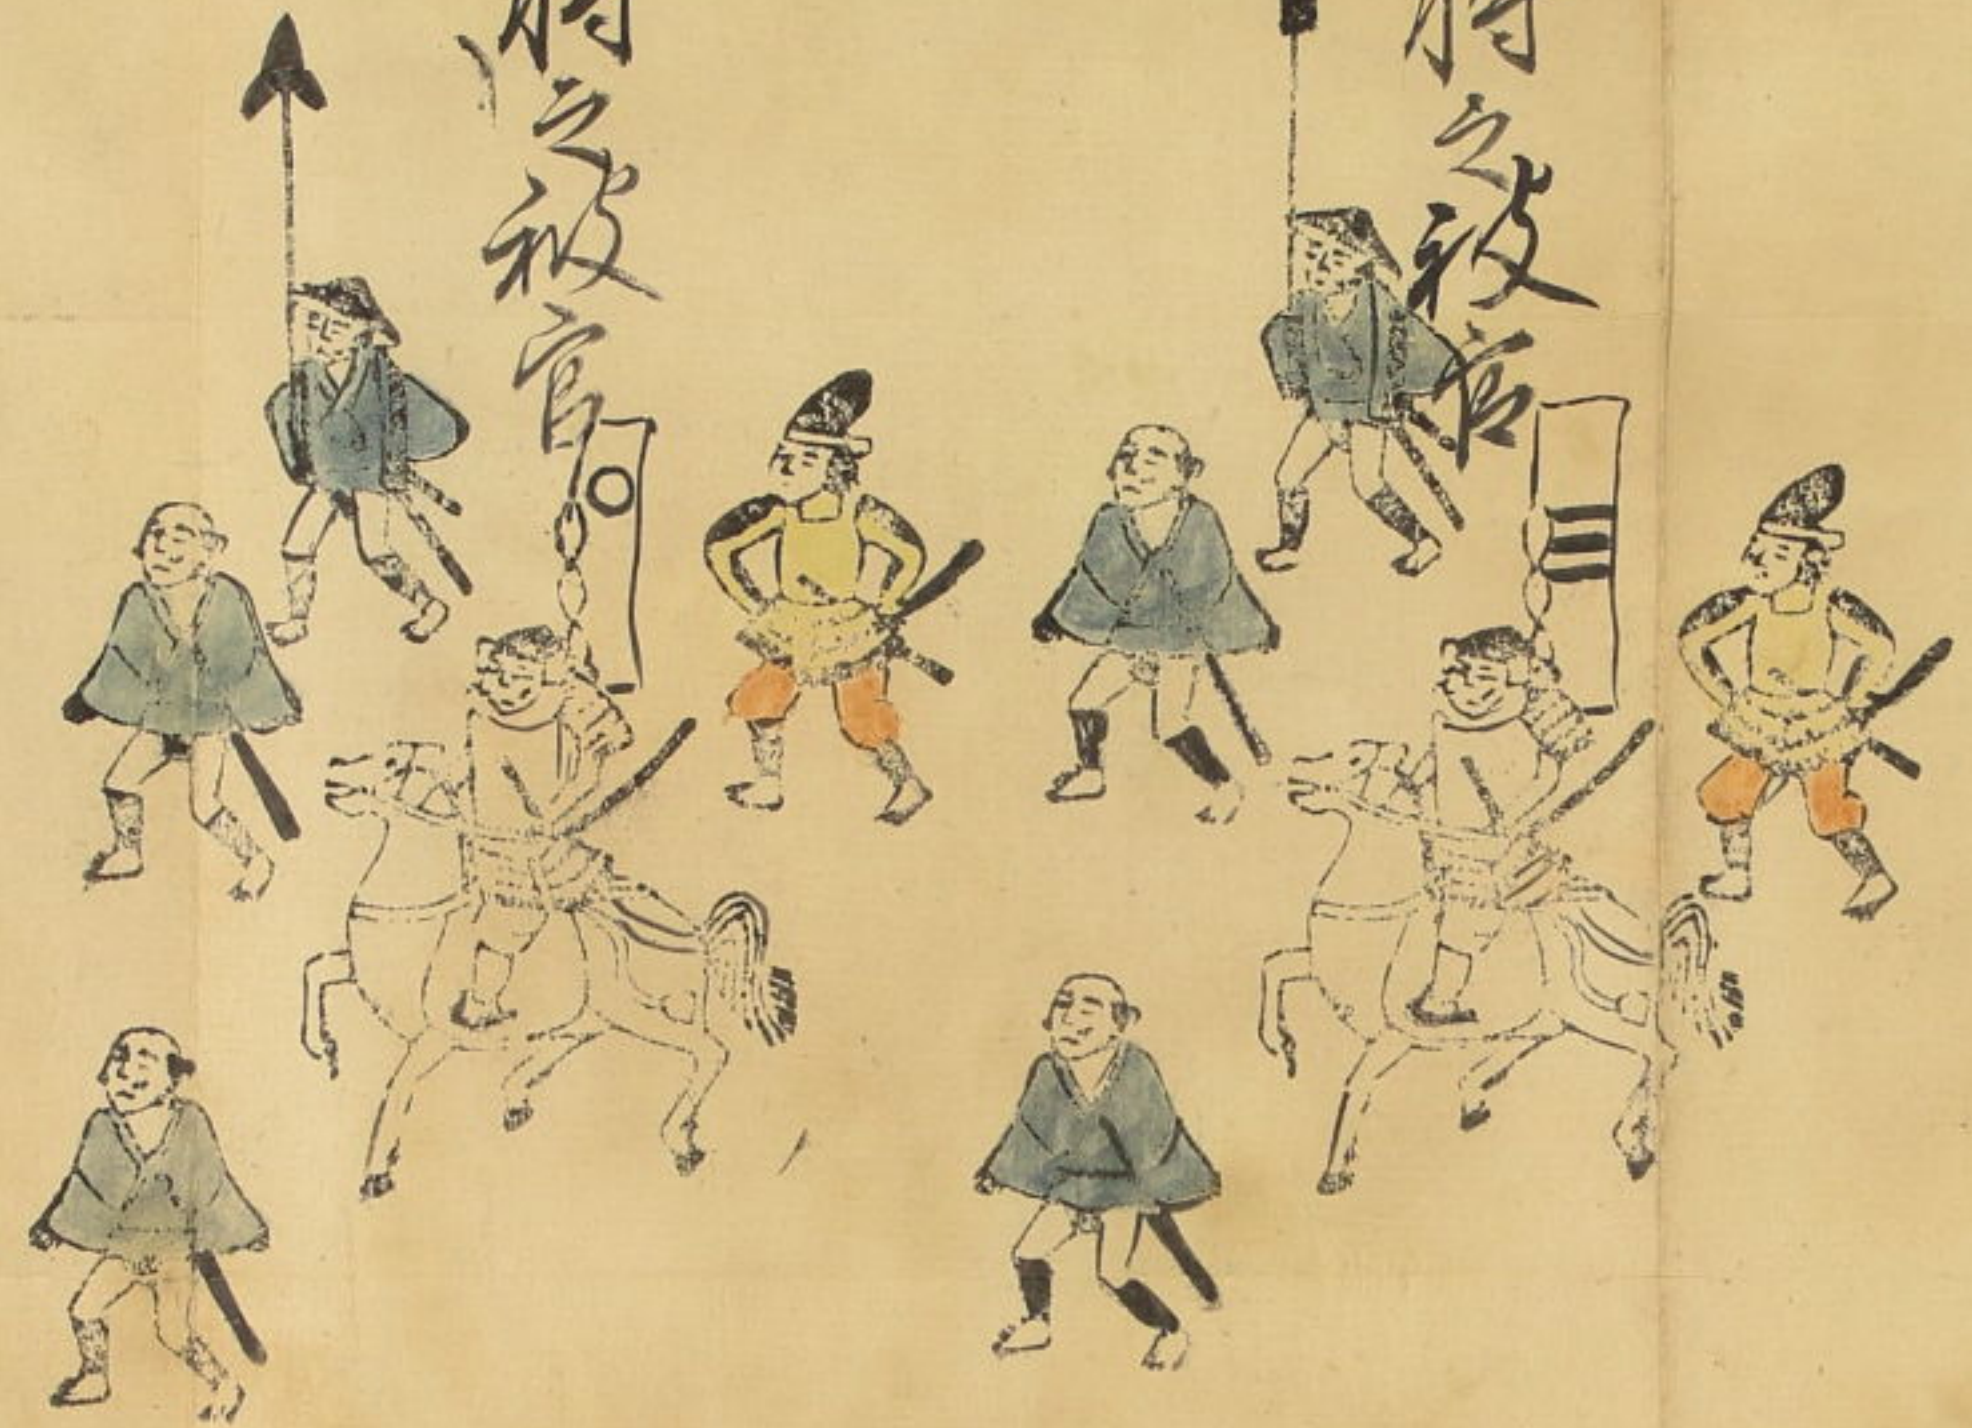 之被官
之被官